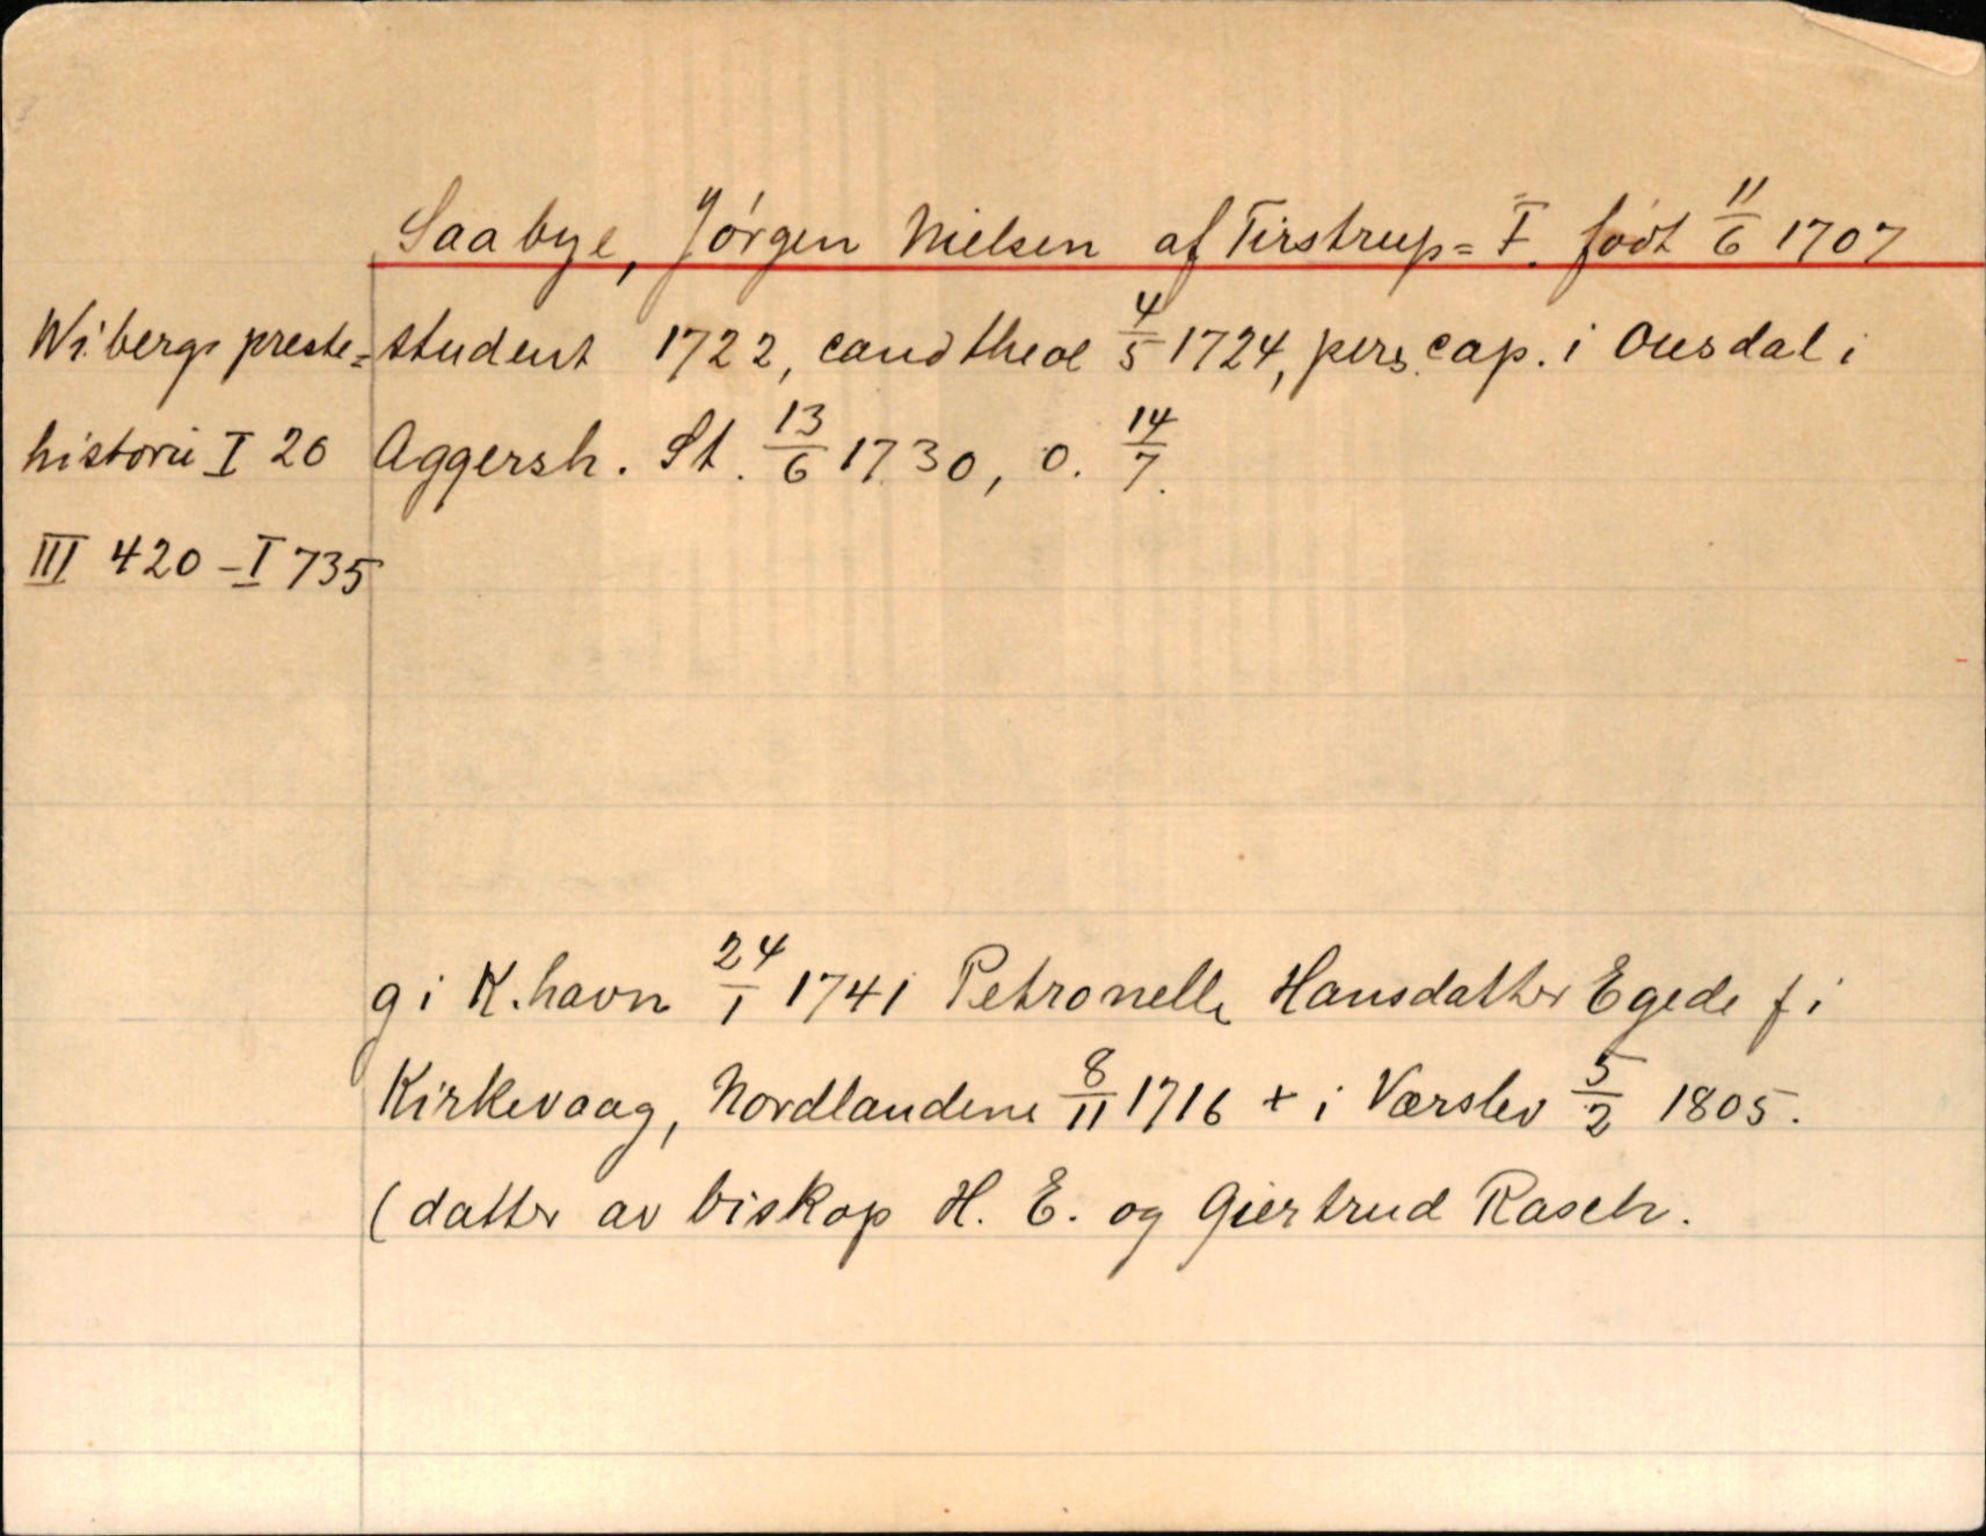 Saabye, Jörgen Nielsen af Tirstrup= F. födt 11/6 1707
Wibergs preste= student 1722, cand theol 4/5 1724, pers. cap. i Ousdal i
historie I 20 Aggersh. St. 13/6 1730, o. 14/7.
III 420 - I 735
g i K.havn 24/1 1741 Petronelle Hansdatter Egede f i
Kirkevaag, Nordlandene 8/11 1716 + i Værslev 5/2 1805.
(datter av biskop H. E. og Giertrud Rasch.